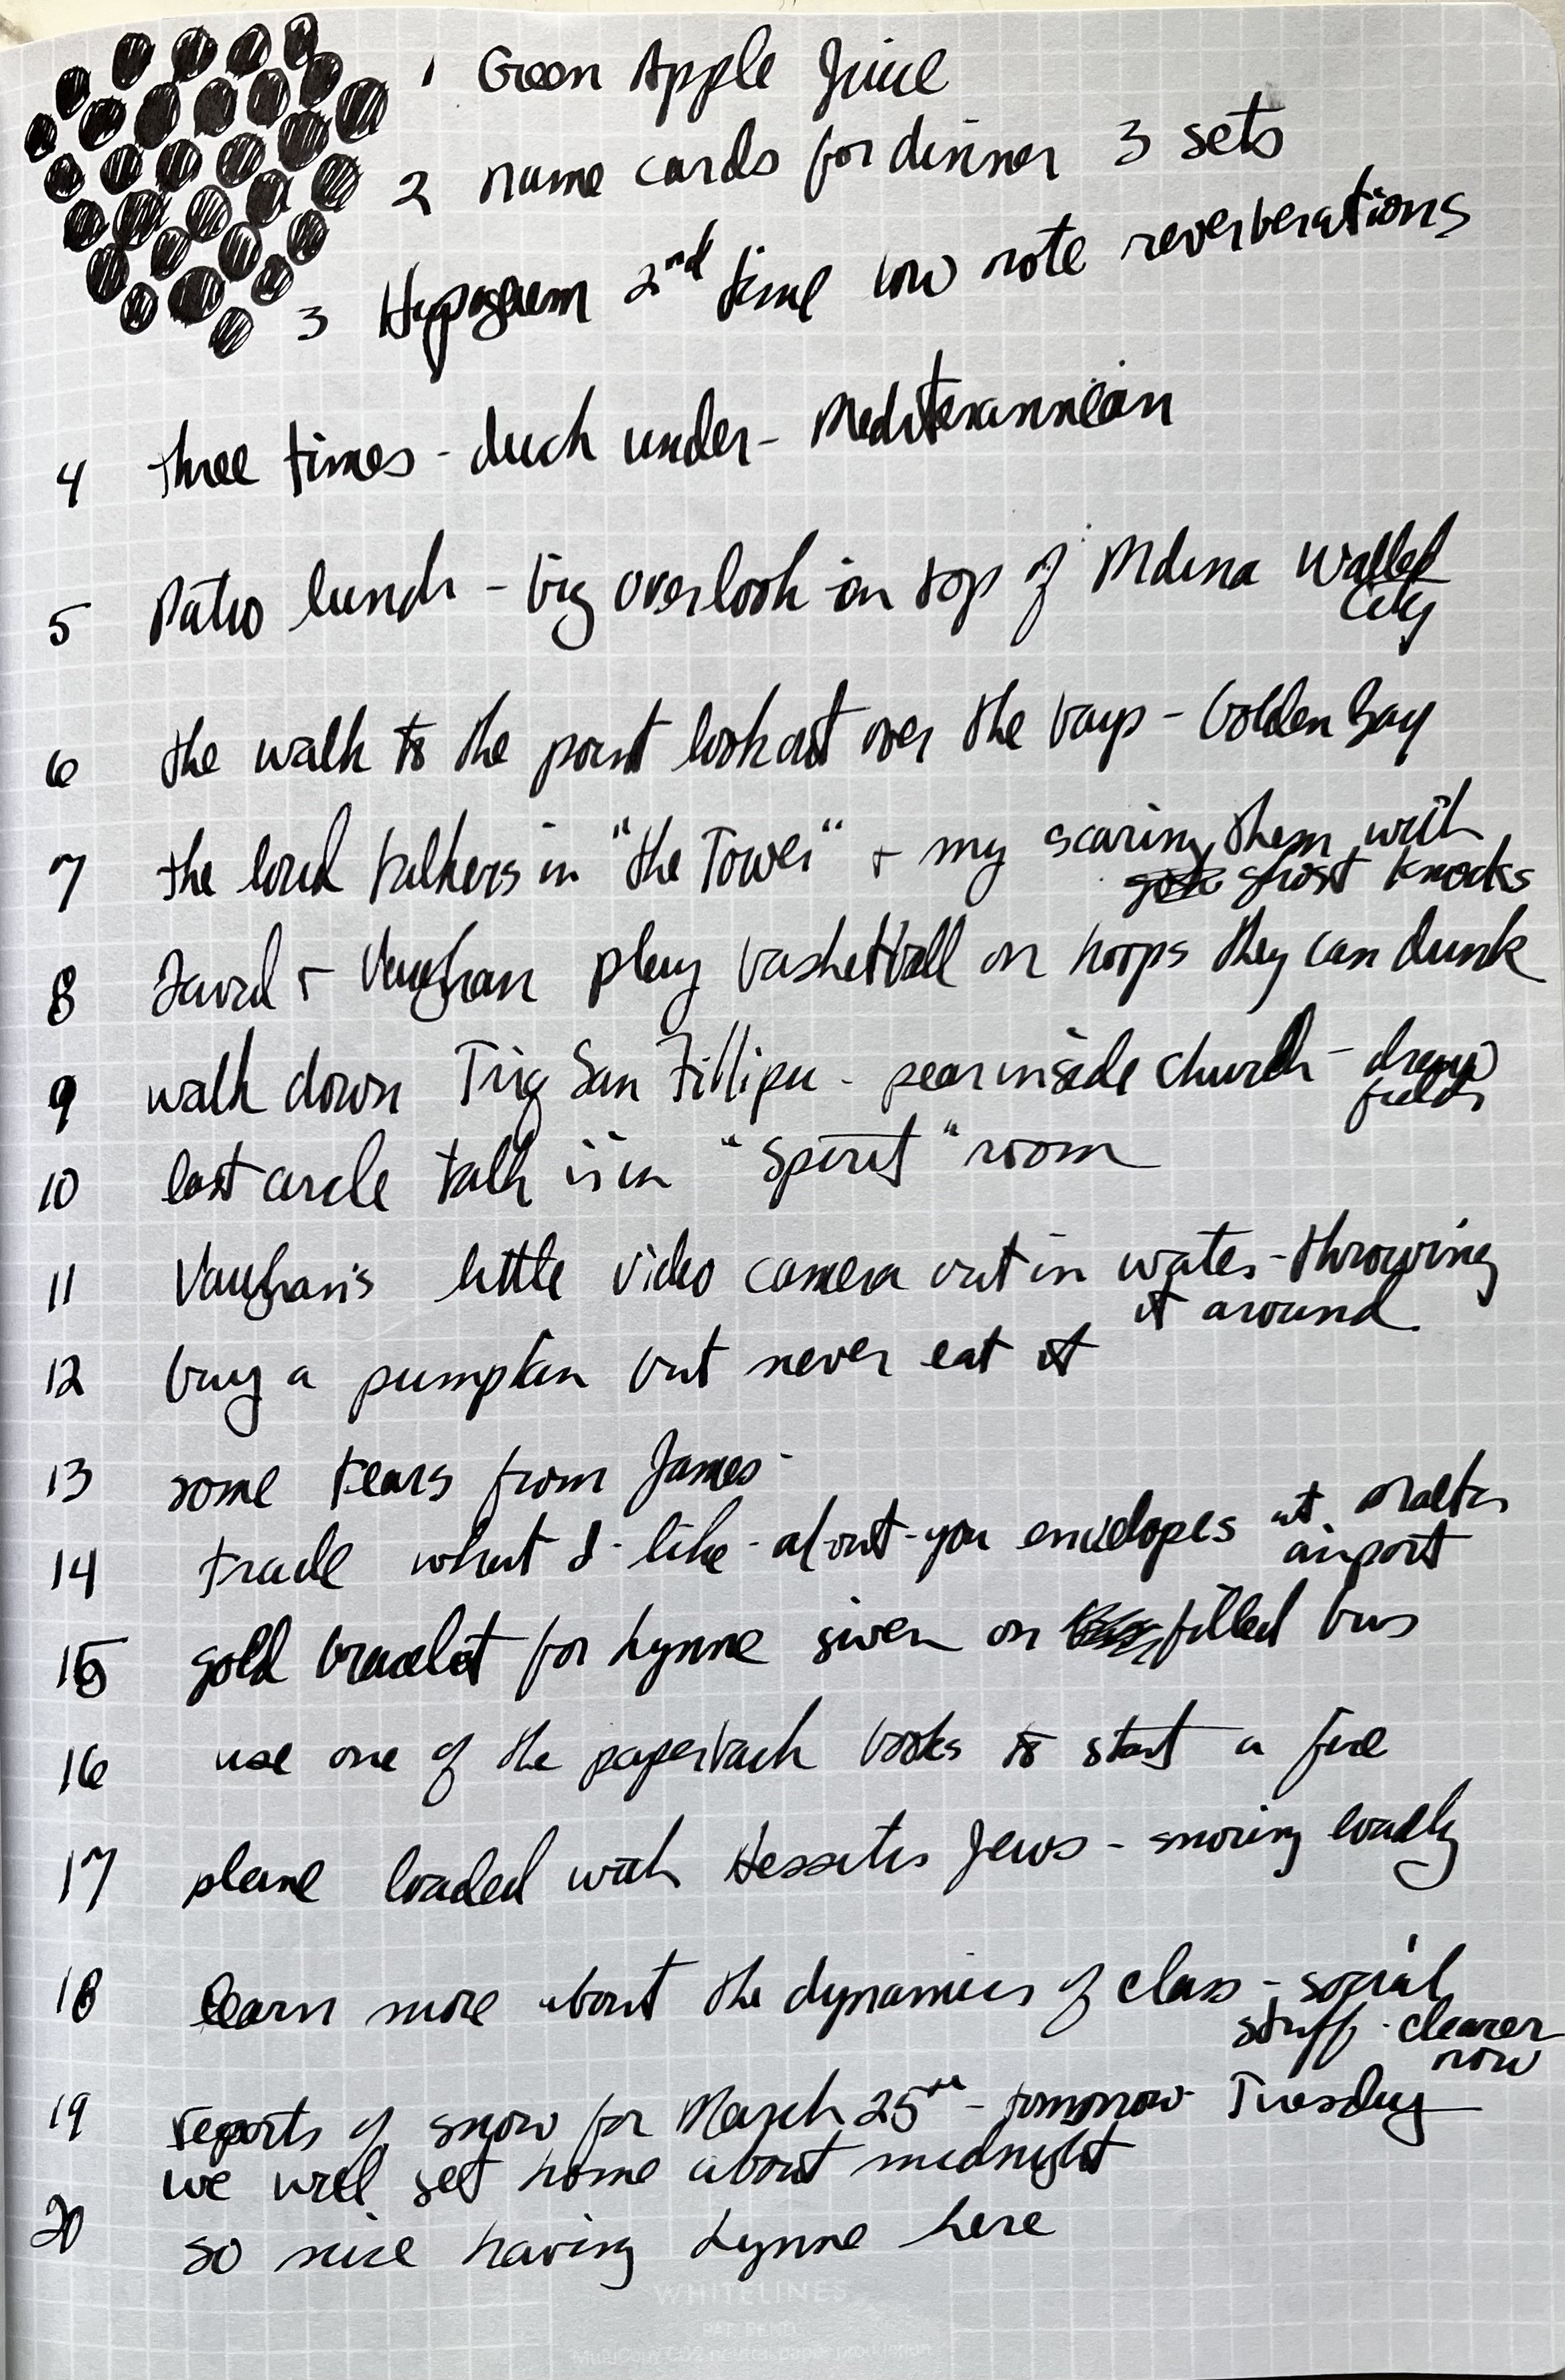 1 Green Apple Juice
2 name cards for dinner 3 sets
3 Hypogeum 2nd time low note reverberations
4 three times - duck under - Mediteranneian
5 Patio lunch - big overlook on top of Mdina Walled
City
6 the walk to the point lookout over the bays - Golden Bay
7 the loud talkers in "the Tower" + my scaring them with
ghost knocks
8 David + Vaughan play basketball on hoops they can dunk
9 walk down Triq San Fillipu - peer inside church -
fields
10 last circle talk is in "Spirit" room
11 Vaughan's little video camera out in water - throwing
it around.
12 buy a pumpkin but never eat it
13 some tears from James -
14 trade what I - like - about - you envelopes at Malta
airport
15 gold bracelet for Lynne given on filled bus
16 use one of the paperback books to start a fire
17 plane loaded with Jews - snoring loudly
18 learn more about the dynamics of class - social
stuff - clearer
now
19 reports of snow for March 25th - tomorrow Tuesday
we will get home about midnight
20 so nice having Lynne here
WHITELINES